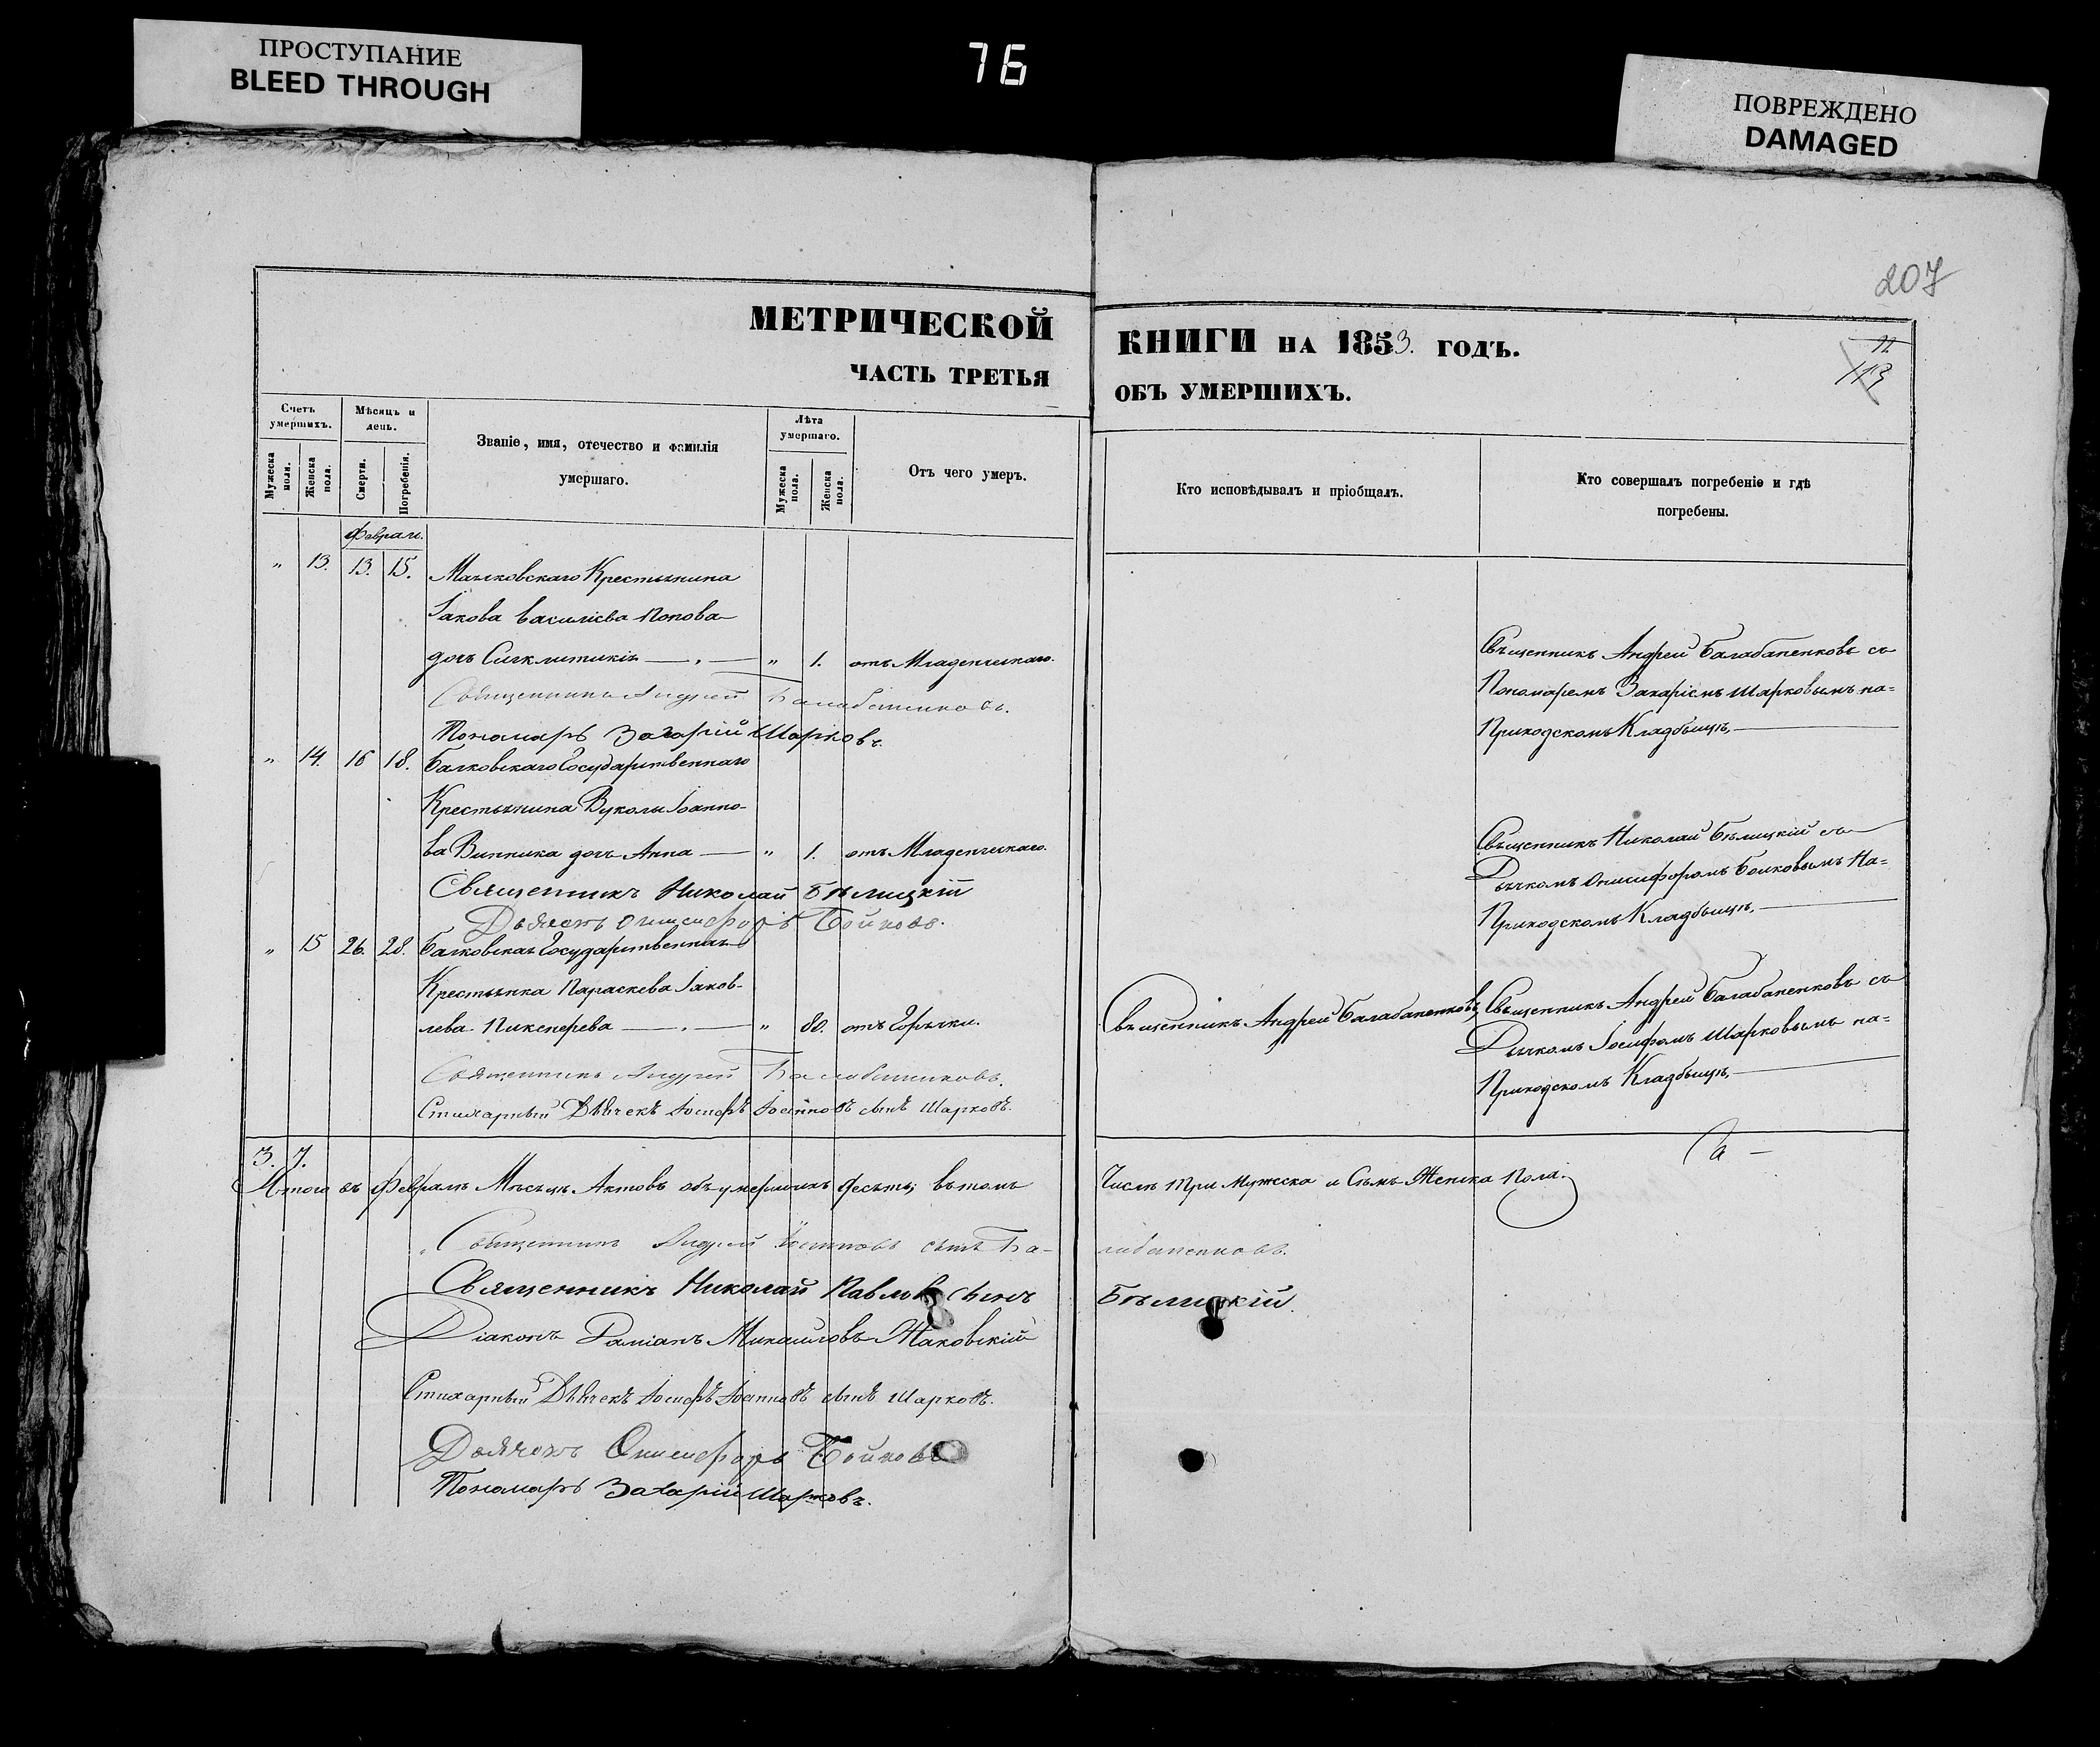 ПРОСТУПАНИЕ
BLEED THROUGH
76
ПОВРЕЖДЕНО
DAMAGED
207
МЕТРИЧЕСКОЙ КНИГИ НА 1853. ГОДЪ.
ЧАСТЬ ТРЕТЬЯ ОБЪ УМЕРШИХЪ.
11
113
Счетъ умершихъ.
Мужеска пола.
Женска пола.
Мѣсяцъ и день.
Смерти.
Погребенія.
Званіе, имя, отечество и фамилія
умершаго.
Лѣта умершаго.
Мужеска пола.
Женска пола.
Отъ чего умеръ.
Кто исповѣдывалъ и пріобщалъ.
Кто совершалъ погребеніе и гдѣ
погребены.
Феврал.
„ 13. 13. 15. Крестьянина
Іакова Василіева Попова
дочь Сигклитикія — „ 1. отъ Младенческаго.
Священникъ Андрей Балабаненковъ съ
Пономаремъ Захаріемъ Шарковымъ на=
Приходскомъ Кладбищѣ,
Священникъ Андрей Балабаненковъ.
Пономарь Захарій Шарковъ.
„ 14. 16 18. Балковскаго Государственнаго
Крестьянина Вуколы Іоанно-
ва Винника дочь Анна — „ 1. отъ Младенческаго.
Священникъ Николай Бѣлицкій съ
Дьячкомъ Онисифоромъ Бойковымъ На=
Приходскомъ Кладбищѣ,
Священникъ Николай Бѣлицкій
Дьячокъ Онисифоръ Бойковъ.
„ 15 26. 28. Балковская Государственная
Крестьянка Параскева Іаков-
лева Никсперева — „ 80. отъ Горячки.
Священникъ Андрей Балабаненковъ,
Священникъ Андрей Балабаненковъ съ
Дьячкомъ Іосифомъ Шарковымъ на=
Приходскомъ Кладбищѣ,
Священникъ Андрей Балабаненковъ.
Стихарный Дьячекъ Іосифъ Іоанновъ сынъ Шарковъ.
3. 7.
Итого въ Февралѣ Мѣсяцѣ Актовъ объ умершихъ десять; вътомъ Числѣ три Мужеска и Семь Женска Пола.
Священникъ Андрей Іоанновъ сынъ Балабаненковъ.
Священникъ Николай Павловъ сынъ Бѣлицкій.
Діаконъ Даміанъ Михаиловъ Маковскій
Стихарный Дьячекъ Іосифъ Іоанновъ сынъ Шарковъ.
Дьячокъ Онисифоръ Бойковъ
Пономарь Захарій Шарковъ.